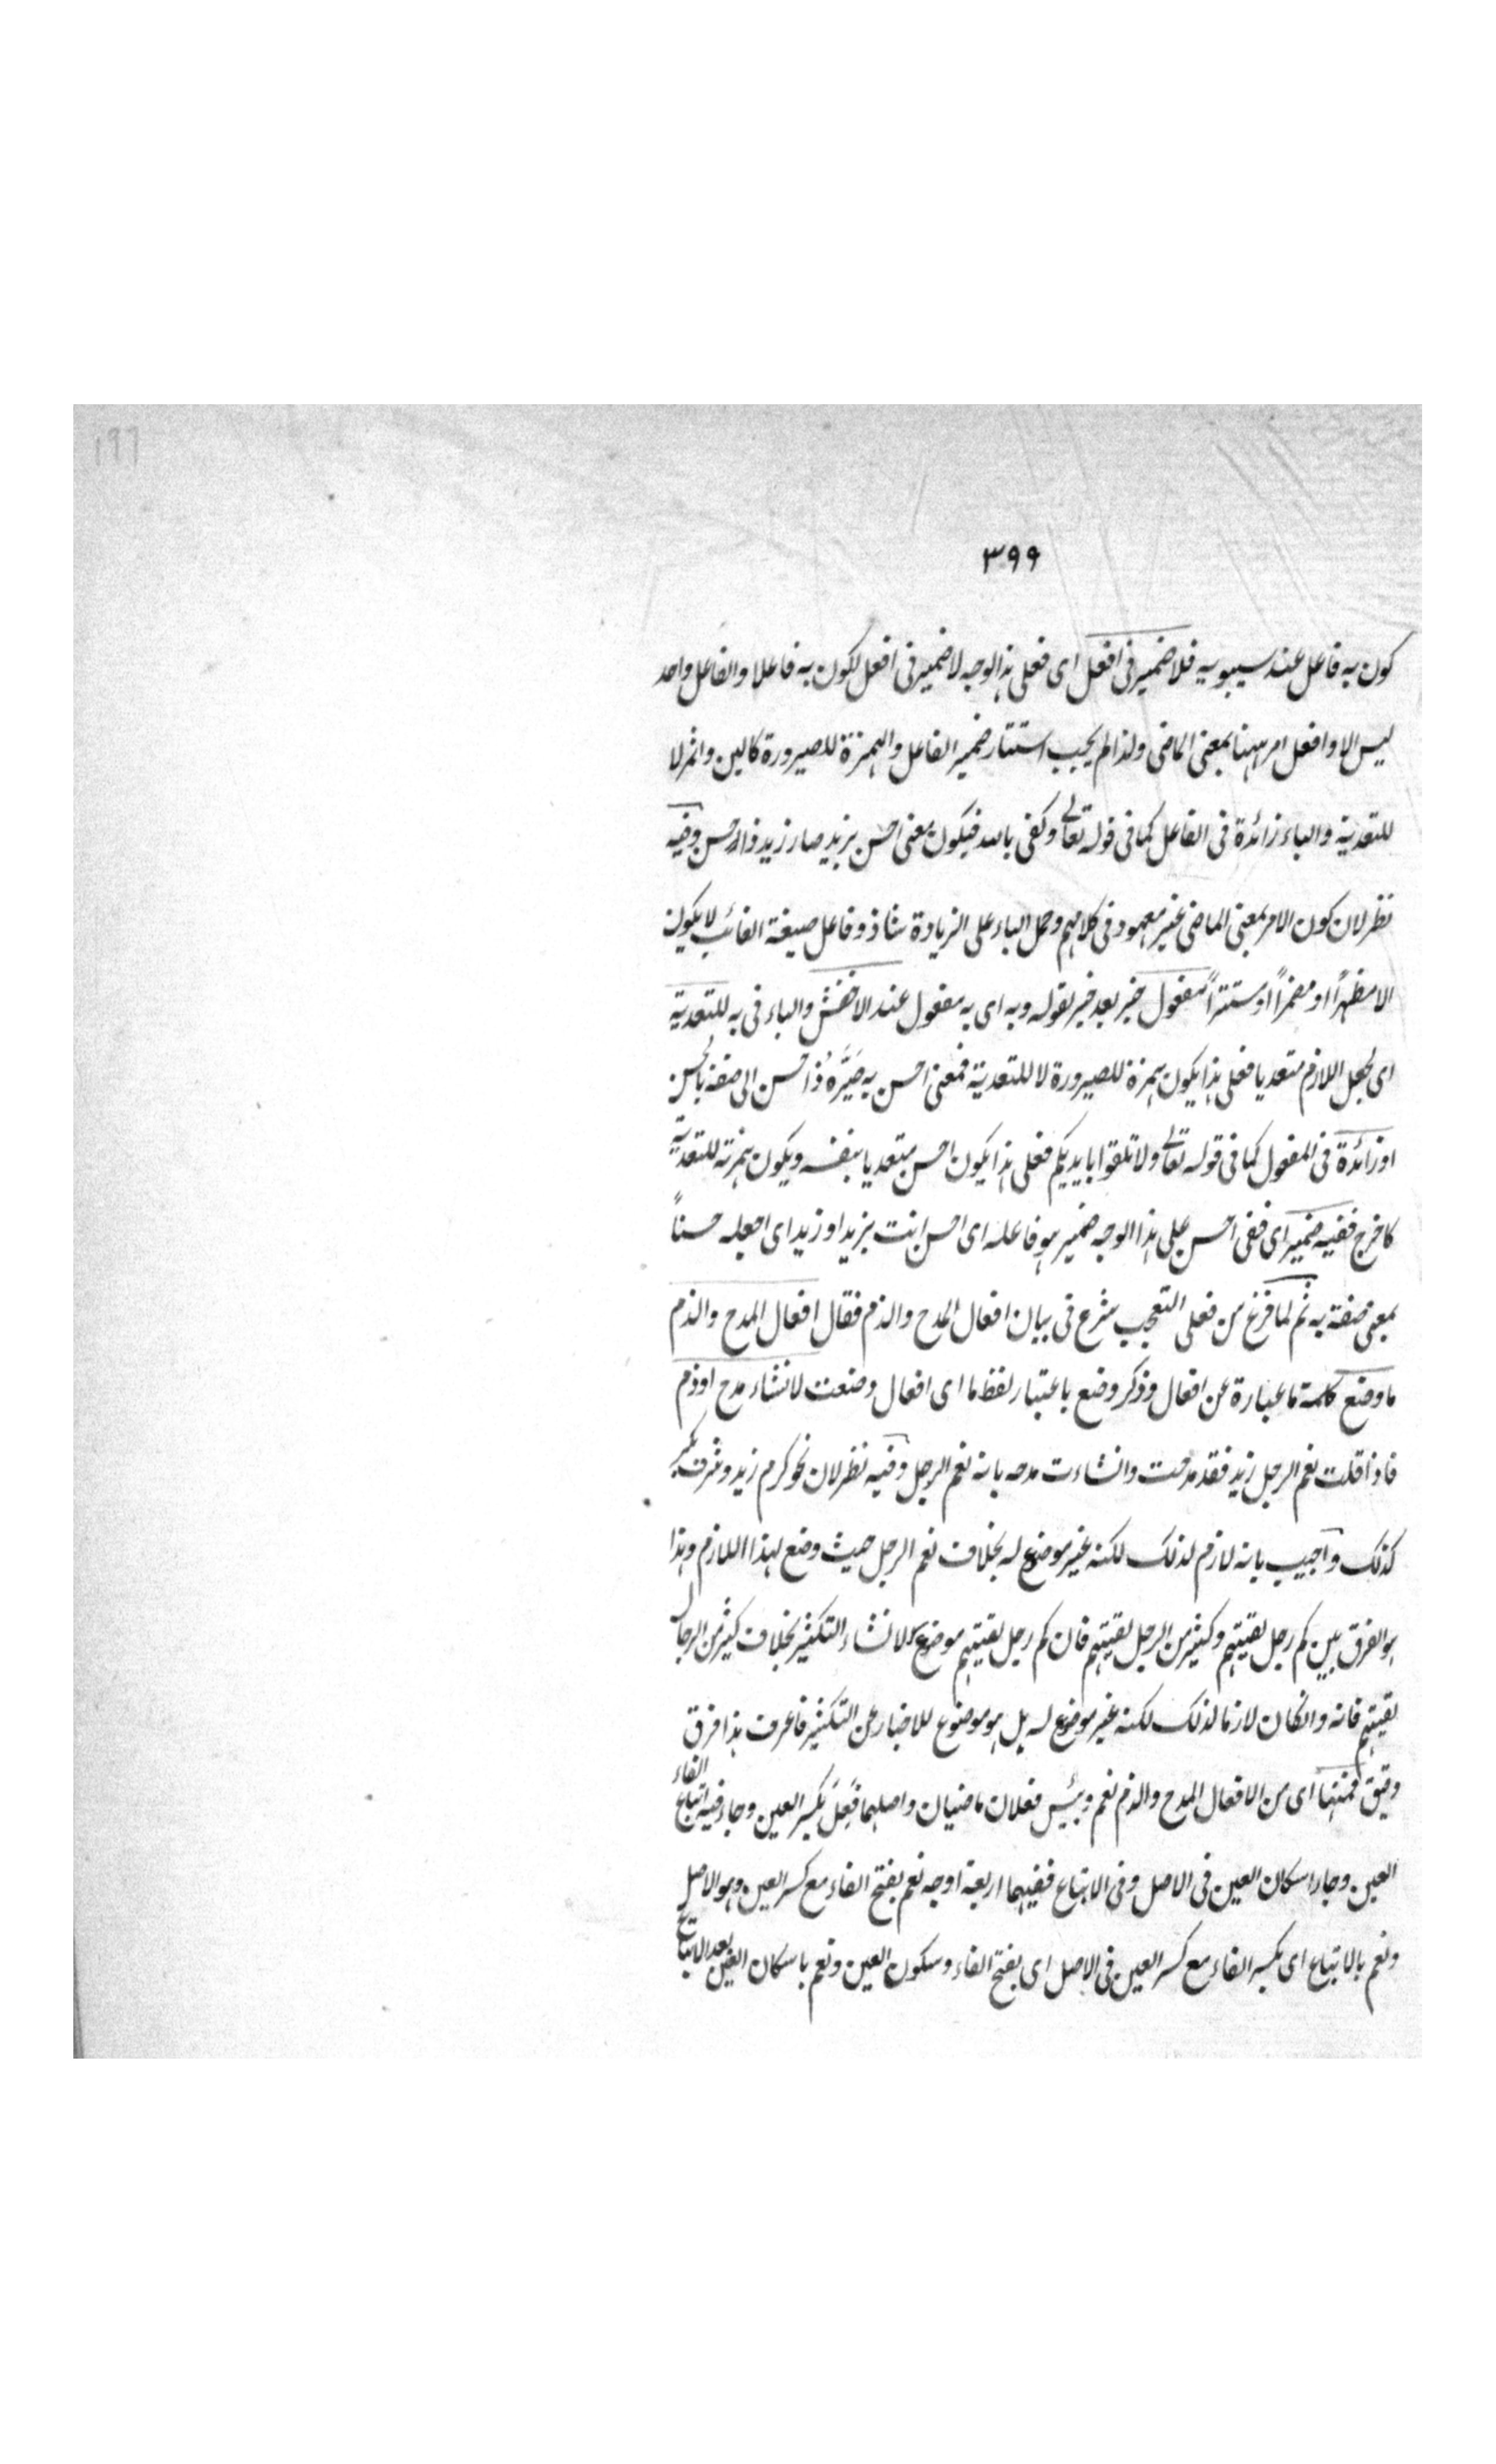 ١٩٦
٣٩٩
كون به فاعل عند سيبويه فلا ضمير فى افعل اى فعلى هذا الوجه لا ضمير فى افعل لكون به فاعلا والفاعل واحد
ليس الا وافعل امر ههنا بمعنى الماضى ولذا لم يجب استتار ضمير الفاعل والهمزة للصيرورة كالبن واثمر لا
للتعدية والباء زائدة فى الفاعل كما فى قوله تعالى وكفى بالله فيكون معنى احسن بزيد صار زيد ذا حسن وفيه
نظر لان كون الامر بمعنى الماضى غير معهود فى كلامهم وحمل الباء على الزيادة شاذ وفاعل صيغة الغائب لا يكون
الا مظهراً او مضمراً او مستتراً مفعول خبر بعد خبر لقوله وبه اى به مفعول عند الاخفش والباء فى به للتعدية
اى لجعل اللازم متعديا فعلى هذا يكون همزة للصيرورة لا للتعدية فمعنى احسن به صَيِّرَهُ ذا حسن الى صفة بالحسن
او زائدة فى المفعول كما فى قوله تعالى ولا تلقوا بايديكم فعلى هذا يكون احسن متعديا بنفسه ويكون همزته للتعدية
كاخرج ففيه ضمير اى ففى احسن على هذا الوجه ضمير هو فاعله اى احسن انت بزيد او زيدا اى اجعله حسناً
بمعنى صفة به ثم لما فرغ من فعلى التعجب شرع فى بيان افعال المدح والذم فقال افعال المدح والذم
ما وضع كلمة ما عبارة عن افعال وذكر وضع باعتبار لفظ ما اى افعال وضعت لانشاء مدح او ذم
فاذا قلت نعم الرجل زيد فقد مدحت وانشاءت مدحه بانه نعم الرجل وفيه نظر لان نحو كرم زيد وشرف بكر
كذلك واجيب بانه لازم لذلك لكنه غير موضوع له بخلاف نعم الرجل حيث وضع لهذا اللازم وهذا
هو الفرق بين كم رجل لقيتهم وكثير من الرجل لقيتهم فان كم رجل لقيتهم موضوع لانشاء التكثير بخلاف كثير من الرجال
لقيتهم فانه وان كان لازما لذلك لكنه غير موضوع له بل هو موضوع للاخبار عن التكثير فاعرف هذا فرق
دقيق فمنها اى من الافعال المدح والذم نعم وبئس فعلان ماضيان واصلهما فَعِلَ بكسر العين وجاء فيه اتباع الفاء
العين وجاء اسكان العين فى الاصل وفى الاتباع ففيهما اربعة اوجه نعم بفتح الفاء مع كسر العين وهو الاصل
ونعم بالاتباع اى بكسر الفاء مع كسر العين فى الاصل اى بفتح الفاء وسكون العين ونعم باسكان العين بعد الاتباع